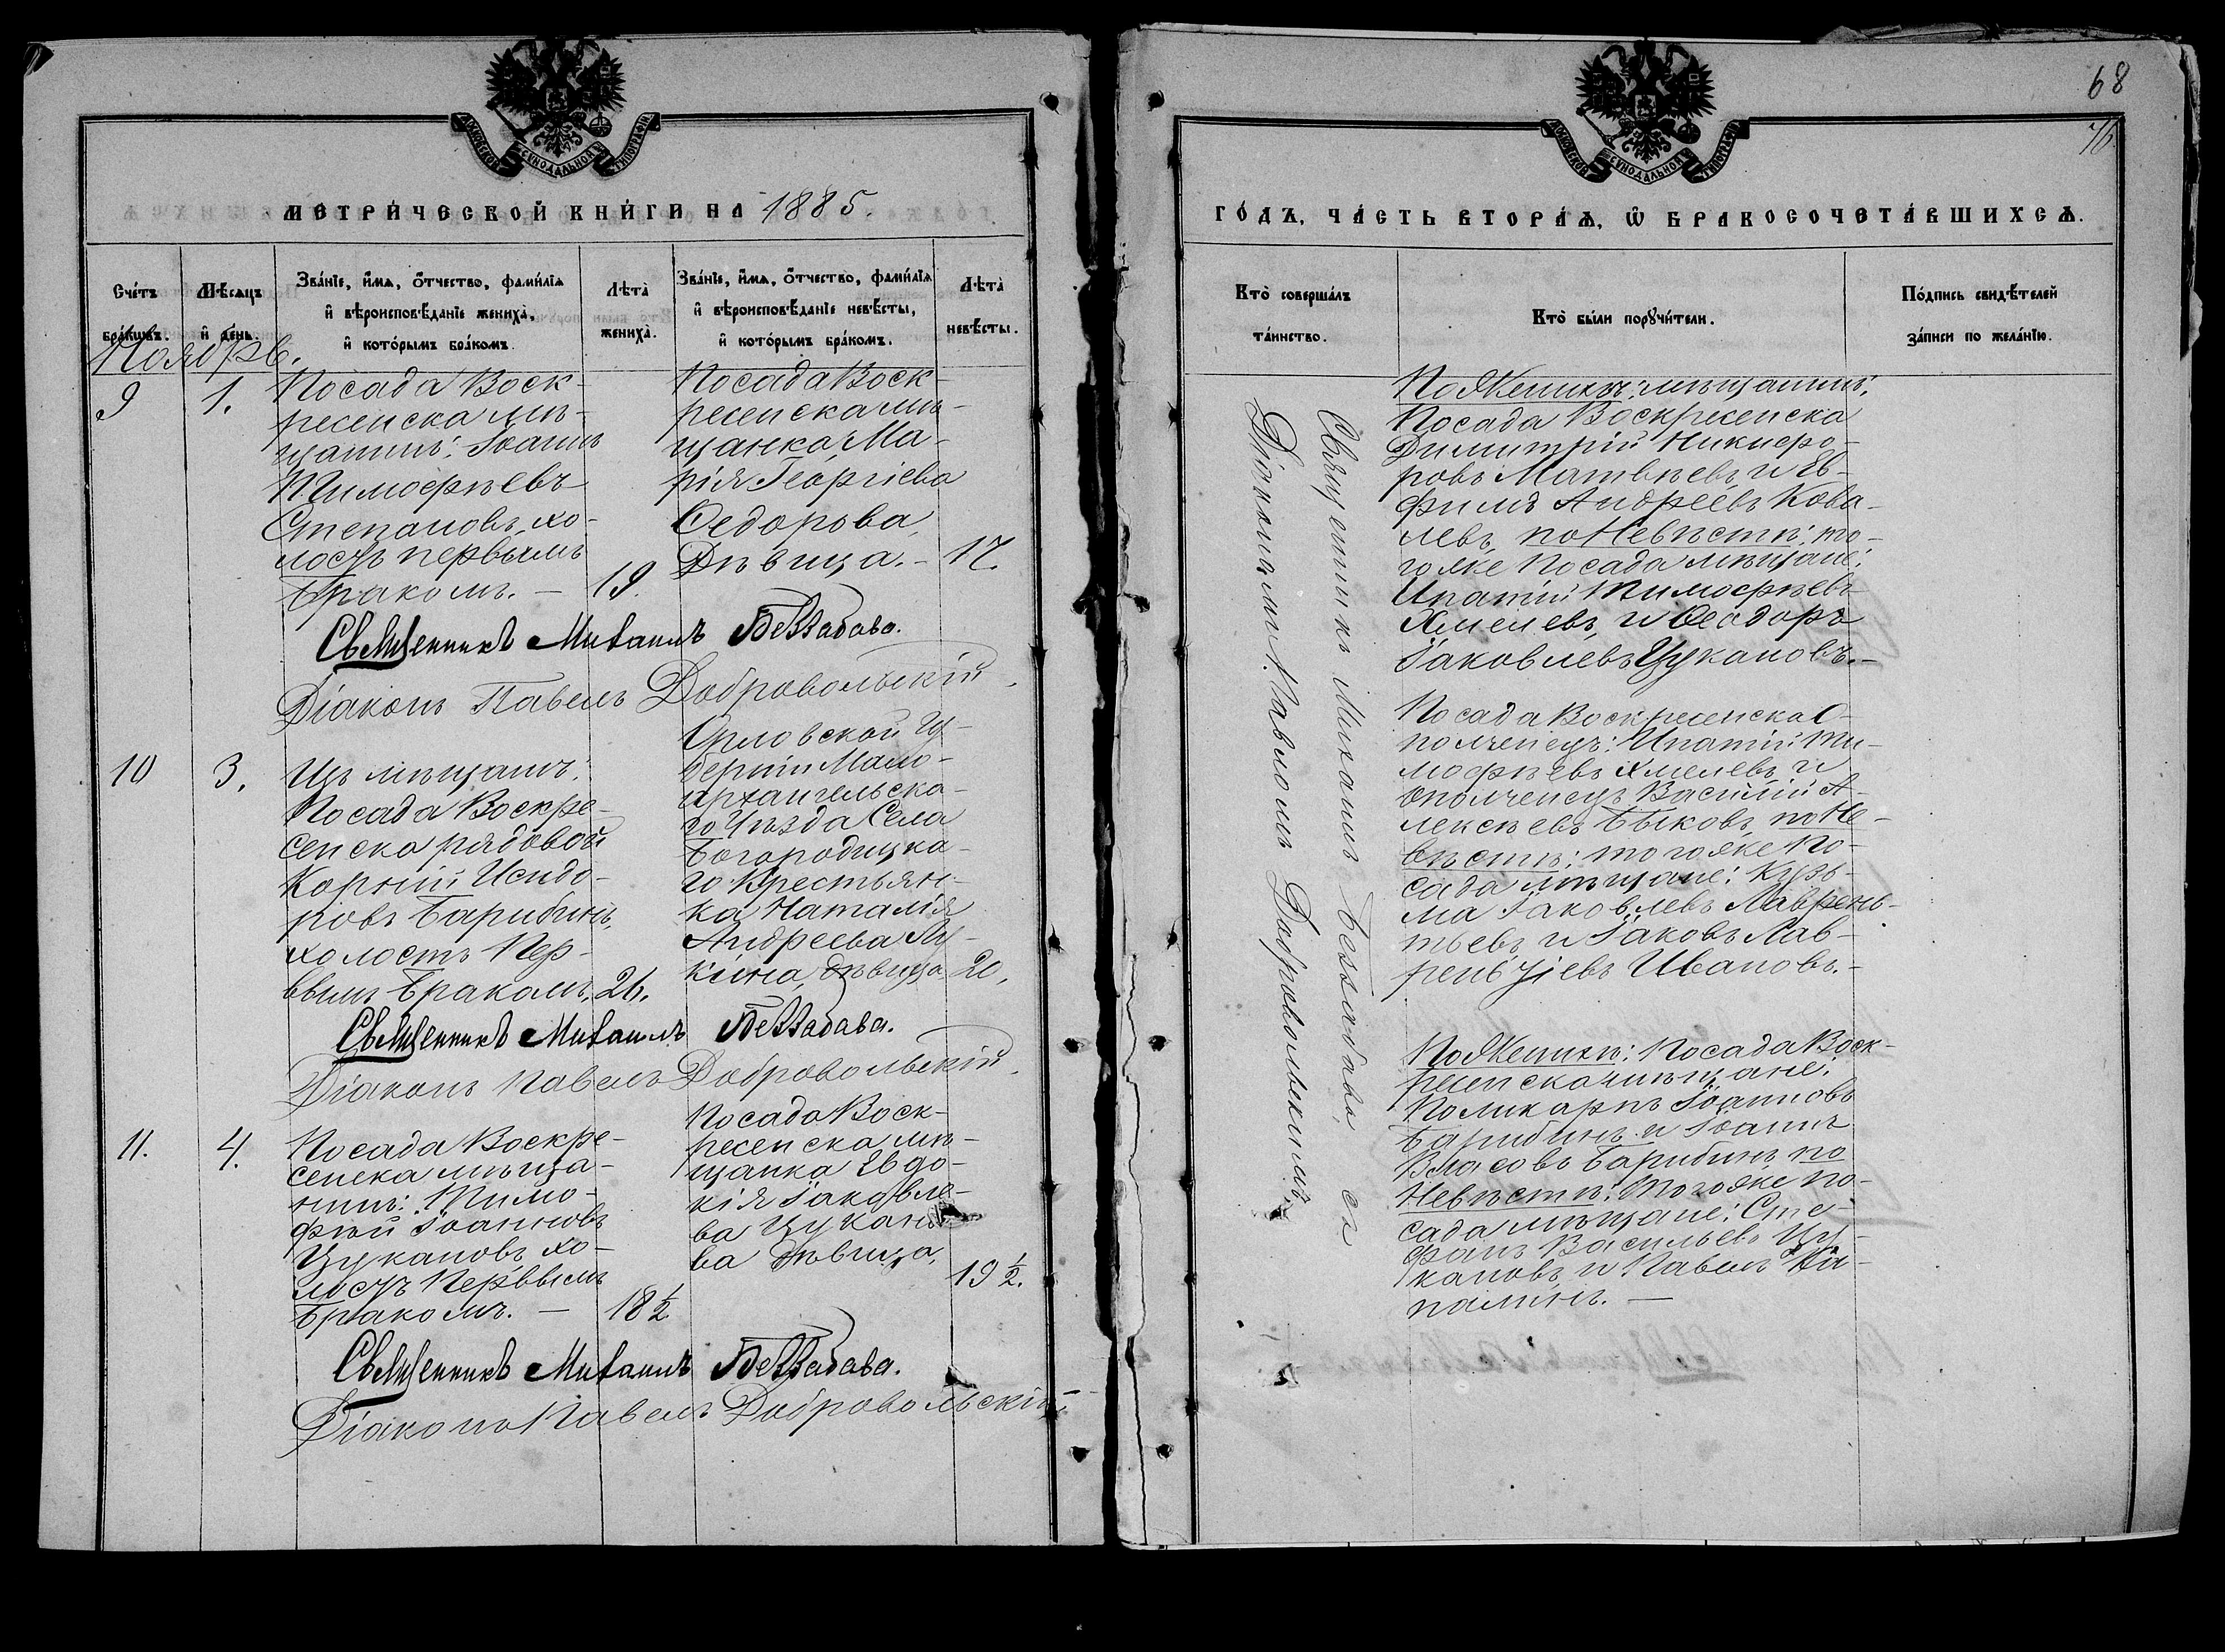 МОСКОВСКОЙ СѴНОДАЛЬНОЙ ТИПОГРАФІИ
МЕТРИ́ЧЕСКОЙ КНИ́ГИ НА 1885.
Сче́тъ бра́кѡвъ.
Мѣ́сяцъ и҆ де́нь.
Зва́нїе, и҆́мѧ, ѻ҆́тчество, фами́лїѧ
и҆ вѣроисповѣ́данїе жениха̀,
и҆ кото́рымъ бра́комъ.
Лѣта̀ жениха̀.
Зва́нїе, и҆́мѧ, ѻ҆́тчество, фами́лїѧ
и҆ вѣроисповѣ́данїе невѣ́сты,
и҆ кото́рымъ бра́комъ.
Лѣта̀ невѣ́сты.
Ноябрь.
9
1.
Посада Воск-
ресенска мѣ-
щанинъ: Іоаннъ
Тимофѣевъ
Степановъ, хо-
лостъ первымъ
бракомъ. — 19.
Посада Воск-
ресенска мѣ-
щанка Ма-
рія Георгіева
Ѳедорова,
Дѣвица. - 17.
Священникъ Михаилъ Беззабава.
Діаконъ Павелъ Добровольскій.
10
3.
Изъ мѣщанъ:
Посада Воскре-
сенска рядовой
Корній Исидо-
ровъ Барибинъ,
холостъ Пер-
вымъ Бракомъ. 26.
Орловской Гу-
берніи Мало-
архангельска-
го Уѣзда Села
Богородицка-
го Крестьян-
ка Наталія
Андреева Лу-
кина, дѣвица 20.
Священникъ Михаилъ Беззабава.
Діаконъ Павелъ Добровольскій.
11.
4.
Посада Воскре-
сенска мѣща-
нинъ: Тимо-
фей Іоанновъ
Цукановъ, хо-
лостъ Первымъ
Бракомъ. — 18½
Посада Воск-
ресенска мѣ-
щанка Евдо-
кія Іаковле-
ва Цукано-
ва дѣвица,
19½.
Священникъ Михаилъ Беззабава.
Діаконъ Павелъ Добровольскій
68
76.
МОСКОВСКОЙ СѴНОДАЛЬНОЙ ТИПОГРАФІИ
ГО́ДЪ, ЧА́СТЬ ВТОРА́Ѧ, Ѡ҆ БРАКОСОЧЕТА́ВШИХСѦ.
Кто̀ соверша́лъ
та́инство.
Кто̀ бы́ли порꙋчи́тели.
По́дпись свидѣ́телей
за́писи по жела́нїю.
Священникъ Михаилъ Беззабава, съ
Діакономъ Павломъ Добровольскимъ.
По Женихѣ: мѣщанинъ:
Посада Воскресенска
Димитрій Никифо-
ровъ Матвѣевъ, и Ев-
фимъ Андреевъ Кова-
левъ, по Невѣстѣ: то-
гоже Посада мѣщане:
Ипатій Тимофѣевъ
Хмелевъ, и Ѳеодоръ
Іаковлевъ Цукановъ. -
Посада Воскресенска О-
полченецъ: Ипатій Ти-
мофѣевъ Хмелевъ, и
Ополченецъ Василій А-
лексѣевъ Быковъ, по Не-
вѣстѣ: тогоже По-
сада мѣщане: Кузь-
ма Іаковлевъ Лаврень-
тьевъ, и Іаковъ Лав-
реньтіевъ Ивановъ. -
По Женихѣ: Посада Воск-
ресенска мѣщане:
Поликарпъ Іоанновъ
Барибинъ и Іоаннъ
Власовъ Барибинъ по
Невѣстѣ: тогоже По-
сада мѣщане: Сте-
фанъ Васильевъ Цу-
кановъ, и Павелъ